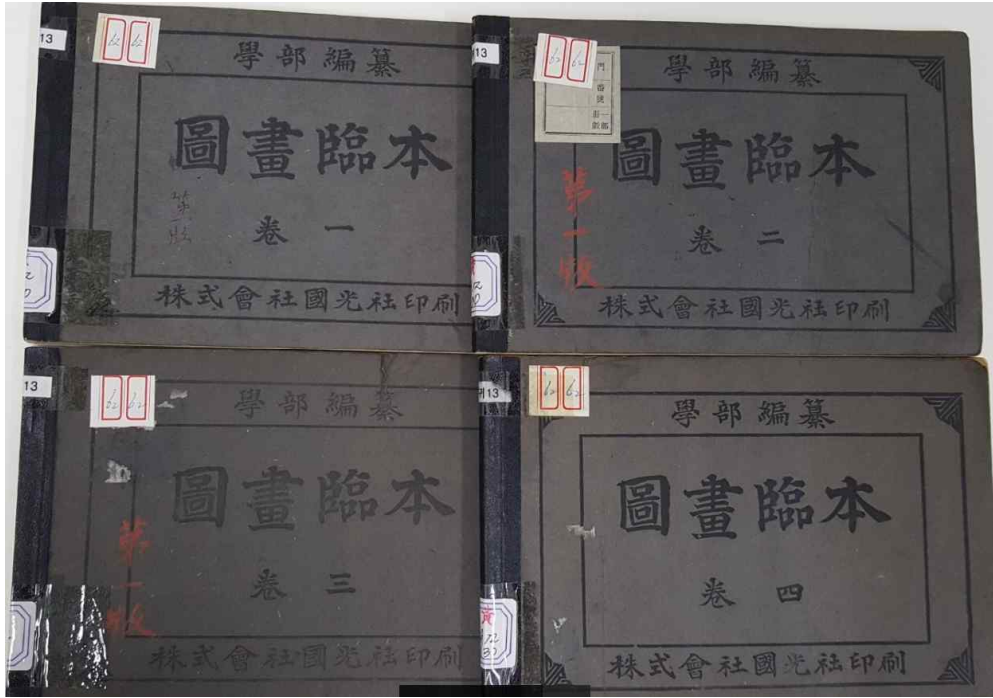 13
62 62
學部編纂
圖畫臨本
卷一
株式會社國光社印刷
13
62 62
門
學部編纂
圖畫臨本
第一版
卷二
株式會社國光社印刷
13
62 62
學部編纂
圖畫臨本
第一版
卷三
株式會社國光社印刷
13
62 62
學部編纂
圖畫臨本
卷四
株式會社國光社印刷